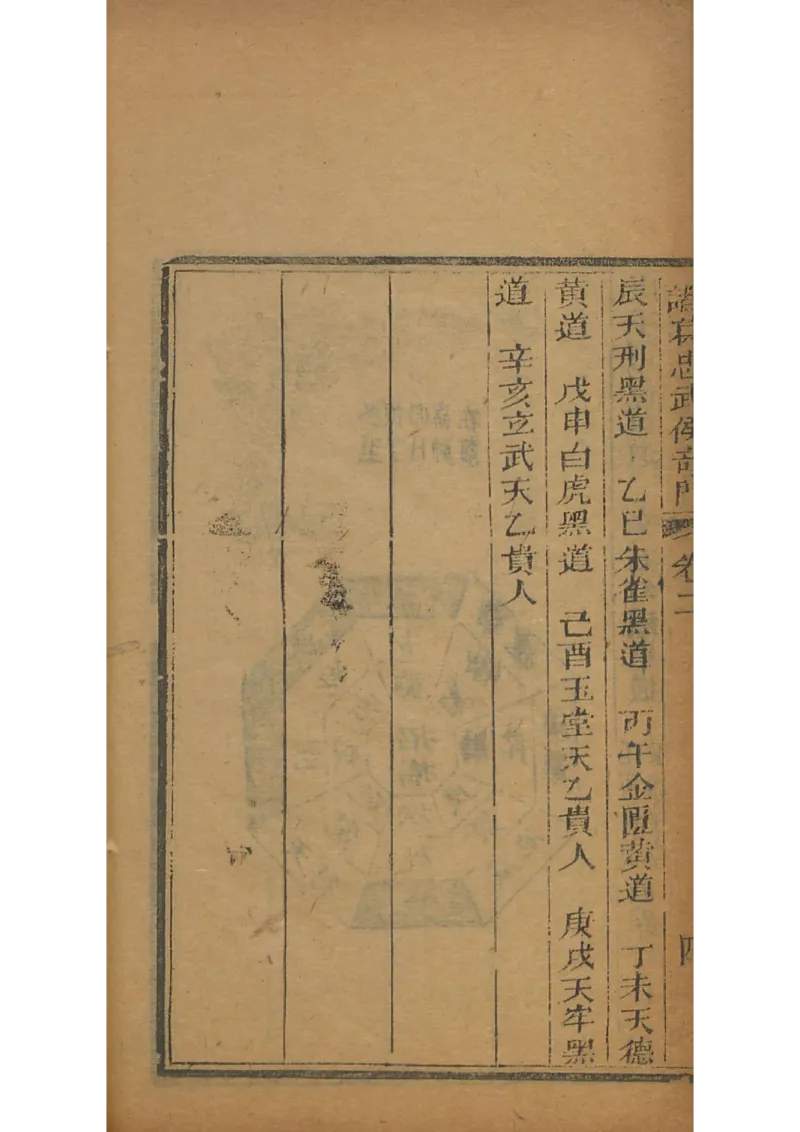 諸葛忠武侯奇門 卷二 四
辰天刑黑道 乙巳朱雀黑道 丙午金匱黃道 丁未天德
黃道 戊申白虎黑道 己酉玉堂天乙貴人 庚戌天牢黑
道 辛亥立武天乙貴人